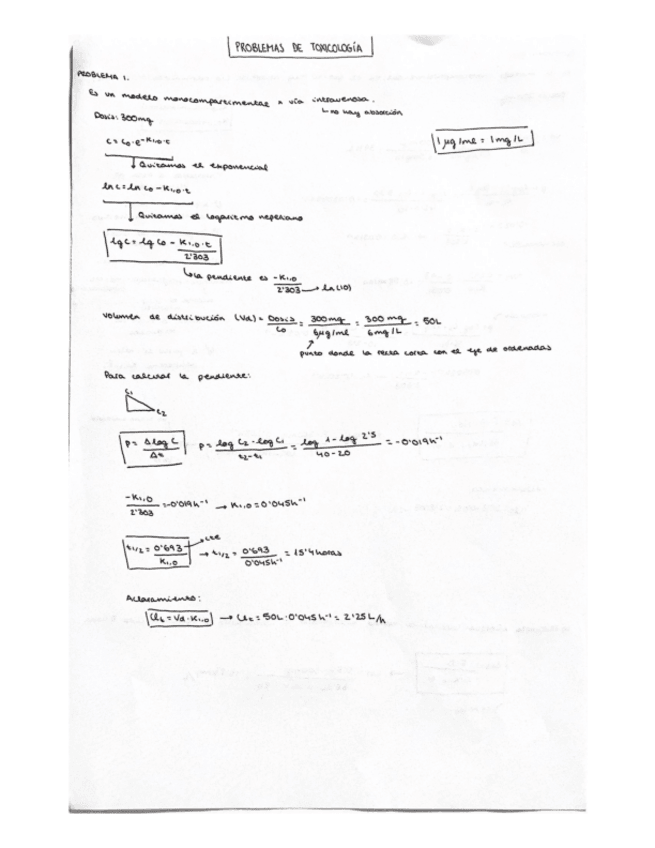 PROBLEMAS DE TOXICOLOGÍA
PROBLEMA 1.
Es un modelo monocompartimental x vía intravenosa.
↳ no hay absorción
Dosis: 300mg
1 µg/ml = 1 mg/L
C = C₀·e^-K₁,₀·t
↓ Quitamos el exponencial
ln C = ln C₀ - K₁,₀·t
↓ Quitamos el logaritmo neperiano
lg C = lg C₀ - K₁,₀·t / 2'303
↳ la pendiente es -K₁,₀ / 2'303 → ln(10)
Volumen de distribución (Vd) = Dosis / C₀ = 300mg / 6µg/ml = 300 mg / 6 mg/L = 50L
punto donde la recta corta con el eje de ordenadas
Para calcular la pendiente:
C₁
C₂
P = Δlog C / Δt P = log C₂ - log C₁ / t₂ - t₁ = log 1 - log 2'5 / 40 - 20 = -0'019h⁻¹
-K₁,₀ / 2'303 = -0'019h⁻¹ → K₁,₀ = 0'045h⁻¹
t₁/₂ = 0'693 / K₁,₀ → cte → t₁/₂ = 0'693 / 0'045h⁻¹ = 15'4 horas
Aclaramiento:
Clt = Vd·K₁,₀ → Clt = 50L·0'045h⁻¹ = 2'25 L/h